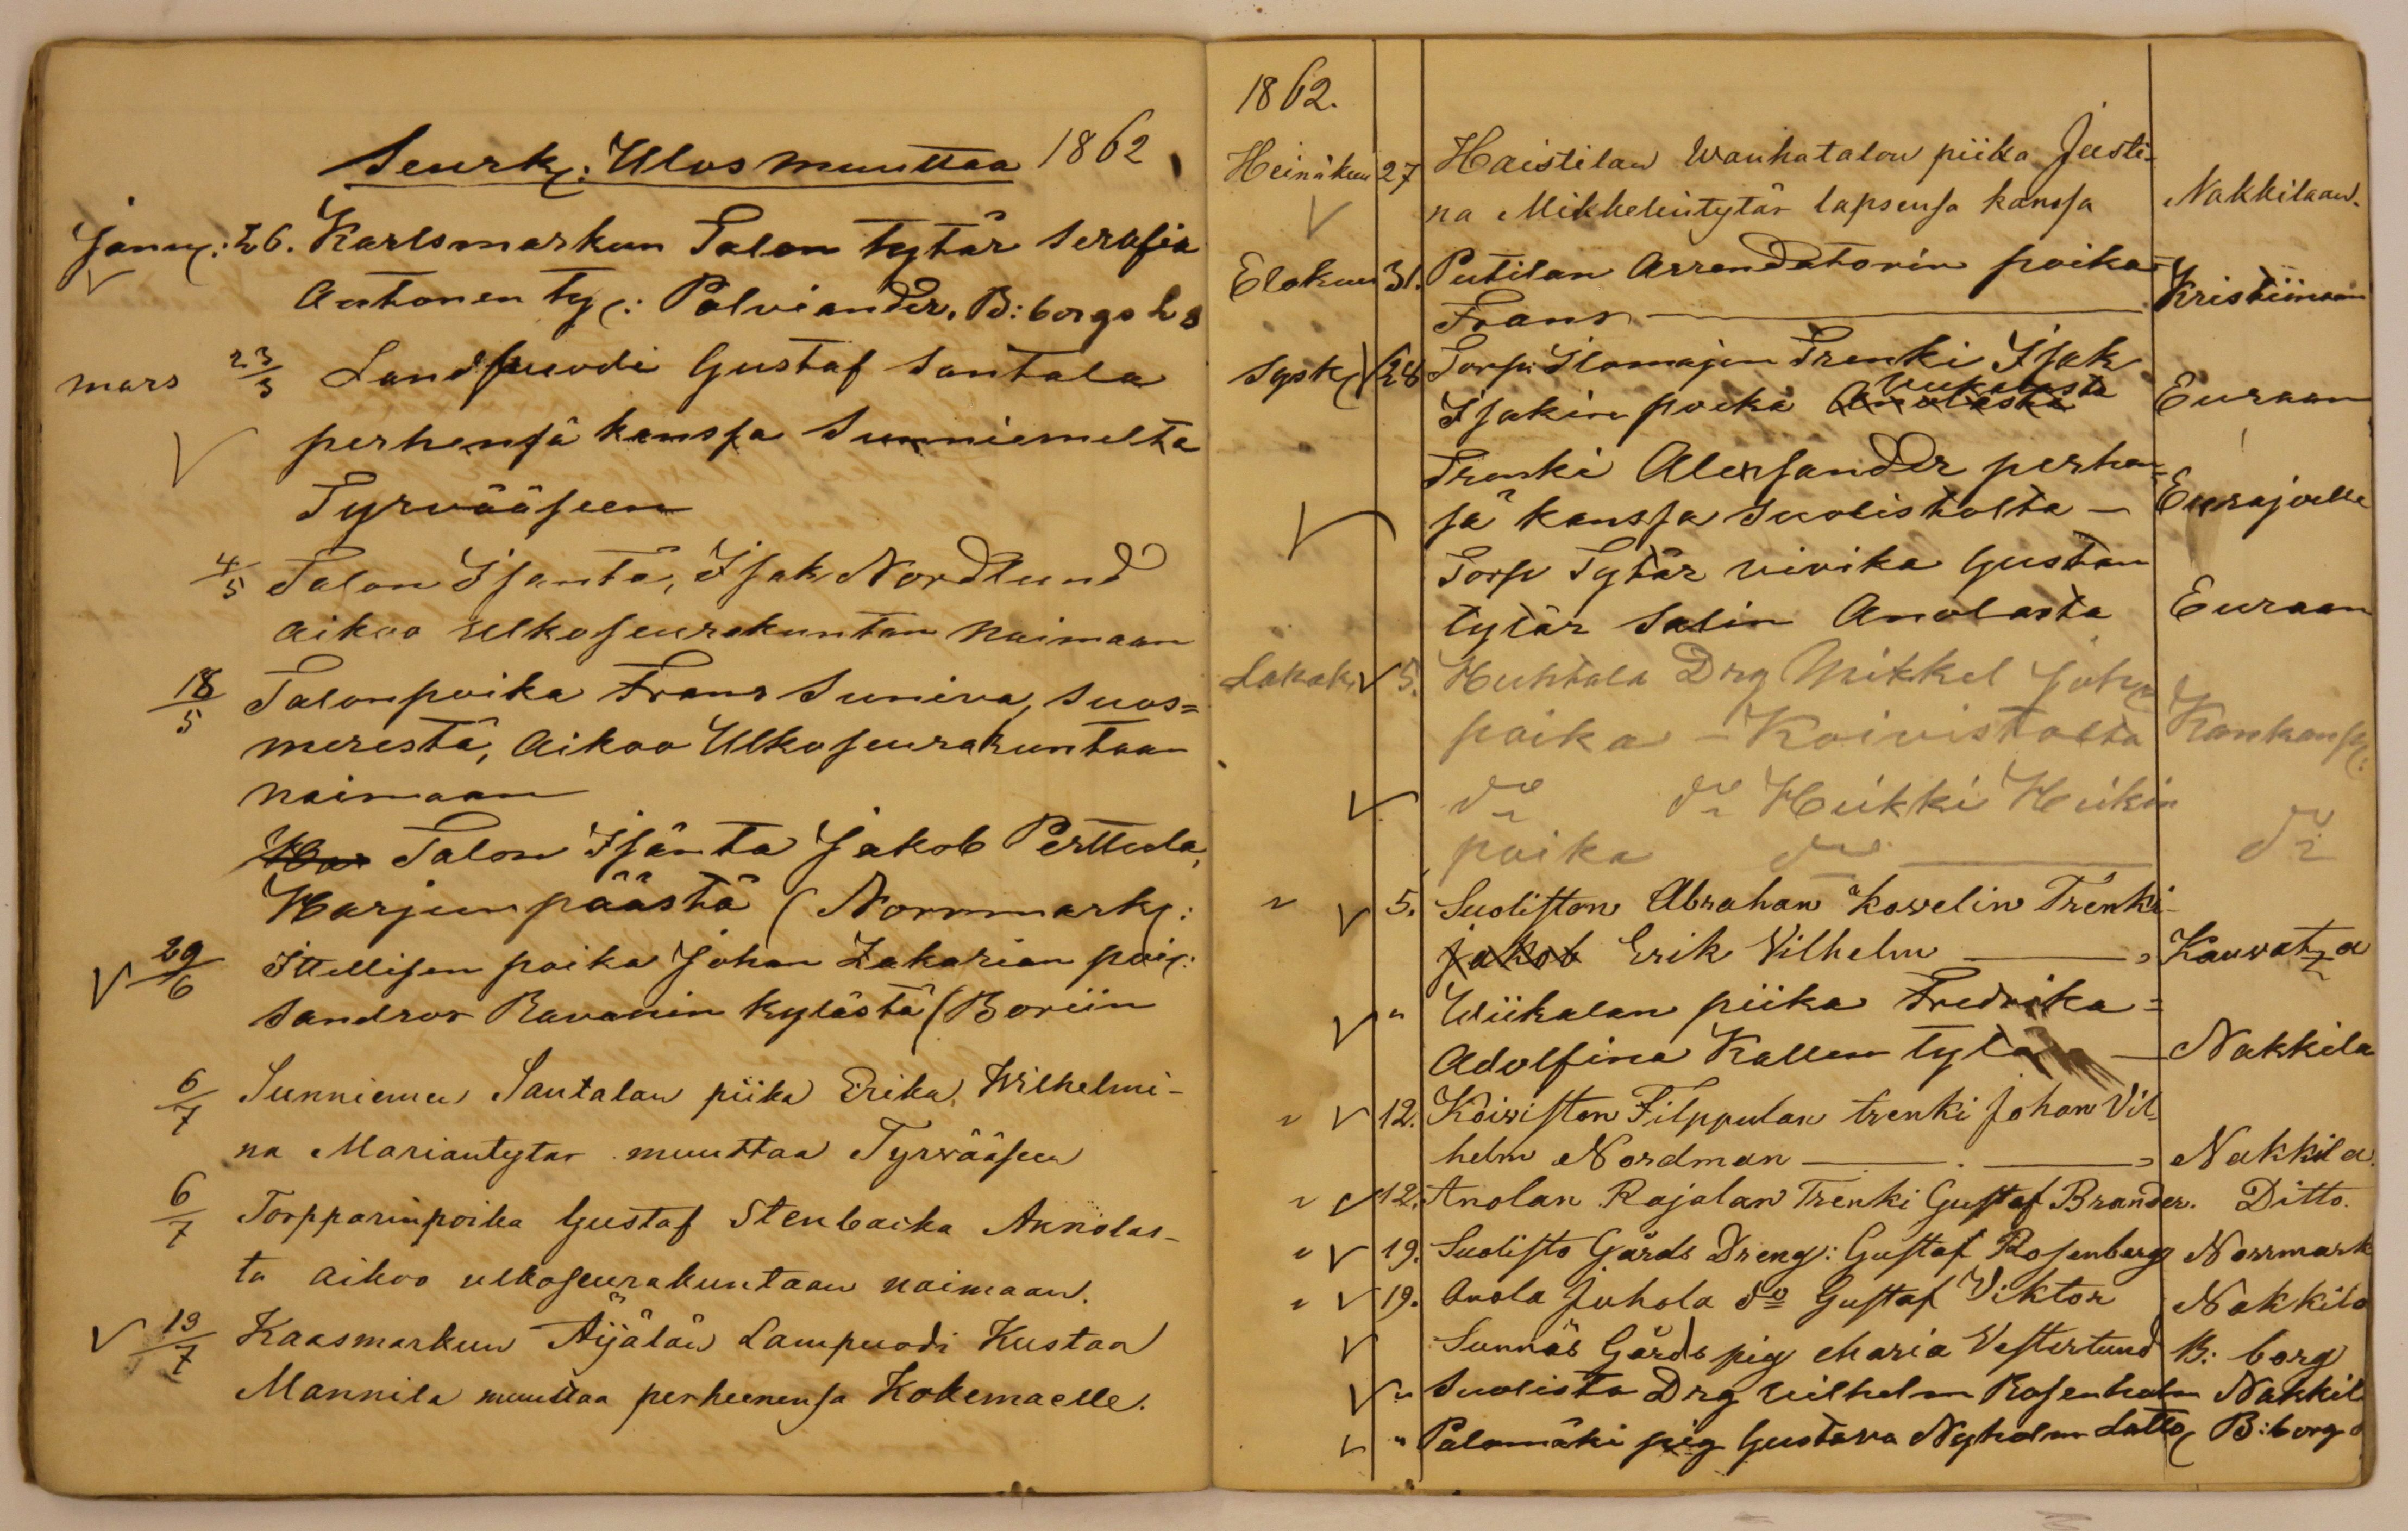 Seurk: Ulos muuttaa 1862
Janu: 26. Karlsmarkun Talon tytär Serafia
Antonen ty: Polviander. B:borgs ls
mars 23/3 Landpuodi Gustaf Santala
perhensä kanssa Sunniemeltä
Tyrwääseen
4/5 Talon Isäntä, Isak Nordlund
aikoo ulkoseurakuntan naimaan
18/5 Talonpoika Frans Suniva, Suos=
merestä, aikoo Ulkoseurakuntaan
naimaan
Talon Isäntä Jakob Perttula,
Harjunpäästä (Norrmark:
29/6 Itellisen poika Johan Zakarian poi:
Sandros Ravanin kylästä (Boriin
6/7 Sunniemen Santalan piika Erika Wilhelmi-
na Mariantytär muuttaa Tyrwääseen
6/7 Torpparinpoika Gustaf Stenbacka Annolas-
ta aikoo ulkoseurakuntaan naimaan.
13/7 Kaasmarkun Äijälän Lampuodi Kustaa
Mannila muuttaa perheenensä Kokemaelle.
1862.
Heinäkuu 27 Haistilan Wanhatalon piika Justi-
na Mikkelintytär lapsensa kanssa Nakkilaan.
Elokuu 31. Putilan Arrendatorin poika
Frans Kristiinaan
Sysk 28 Torp: Ilomäjen Trenki Isak
Isakin poika Anolasta Euraan
Trenki Alexsander perhen-
sä kanssa Suolistolta — Eurajoelle
Torp Tytär vivika Gustan
tytär Salin Anolasta Euraan
Lokak 5. Huhtala Drg Mikkel Joh
poika – Koivistolta Kankanp:
do do Heikki Heikin
poika do do
" 5. Suoliston Abraham Kovelin Trenki
Jakob Erik Vilhelm Kauvatza
" Wiikalan piika Fredrika=
Adolfina Kallen tytä — Nakkila
" 12. Koiviston Filppulan trenki Johan Vil
helm Nordman Nakkila.
" 12. Anolan Rajalan Trenki Gustaf Brander. Ditto.
" 19. Suolisto Gårds Dreng: Gustaf Rosenberg Norrmark
" 19. Anola Juhola do Gustaf Viktor Nakkila
Sunnäs Gårds pig Maria Vesterlund B: borg
" Suolista Drg Vilhelm Rosenholm Nakkil
" Palomäki pig Gustava Nyholm Latto B:borg